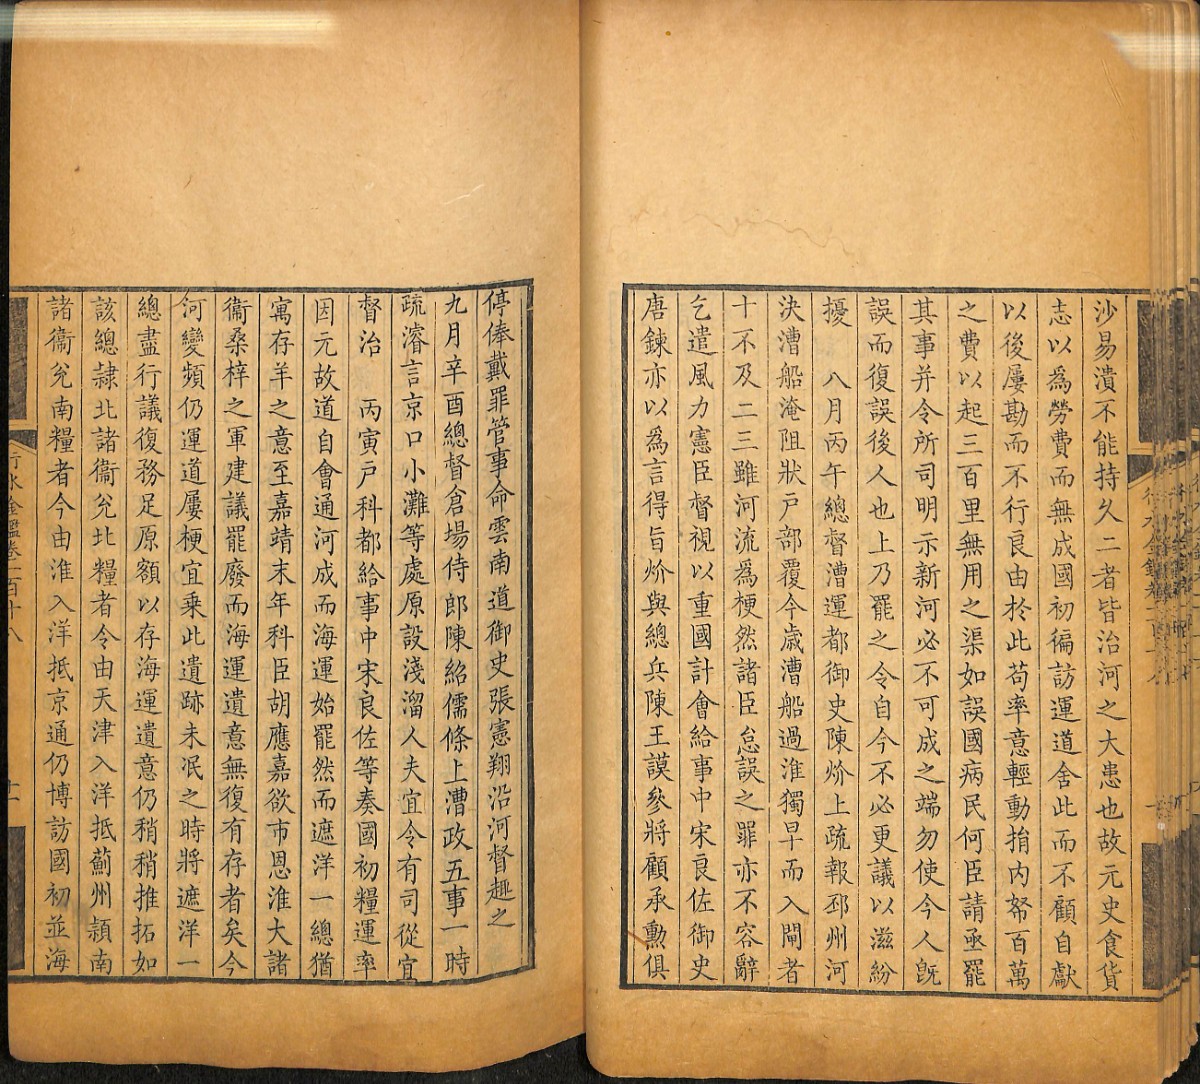 沙易潰不能持久二者皆治河之大患也故元史食貨
志以為勞費而無成國初徧訪運道舍此而不顧自獻
以後屢勘而不行良由於此苟率意輕動捐内帑百萬
之費以起三百里無用之渠如誤國病民何臣請亟罷
其事并令所司明示新河必不可成之端勿使今人旣
誤而復誤後人也上乃罷之令自今不必更議以滋紛
擾　八月丙午總督漕運都御史陳炌上疏報邳州河
決漕船淹阻狀戸部覆今歲漕船過淮獨早而入閘者
十不及二三雖河流為梗然諸臣怠誤之罪亦不容辭
乞遣風力憲臣督視以重國計會給事中宋良佐御史
唐鍊亦以為言得旨炌與總兵陳王謨參將顧承勲俱
停俸戴罪管事命雲南道御史張憲翔沿河督趣之
九月辛酉總督倉場侍郎陳紹儒條上漕政五事一時
疏濬言京口小灘等處原設淺溜人夫宜令有司從宜
督治　丙寅戸科都給事中宋良佐等奏國初糧運率
因元故道自會通河成而海運始罷然而遮洋一總猶
寓存羊之意至嘉靖末年科臣胡應嘉欲市恩淮大諸
衞桑梓之軍建議罷廢而海運遺意無復有存者矣今
河變頻仍運道屢梗宜乗此遺跡未泯之時將遮洋一
總盡行議復務足原額以存海運遺意仍稍稍推拓如
該總隷北諸衞兌北糧者令由天津入洋抵薊州潁南
諸衞兌南糧者今由淮入洋抵京通仍博訪國初並海
行水金鑑卷一百十八
十一